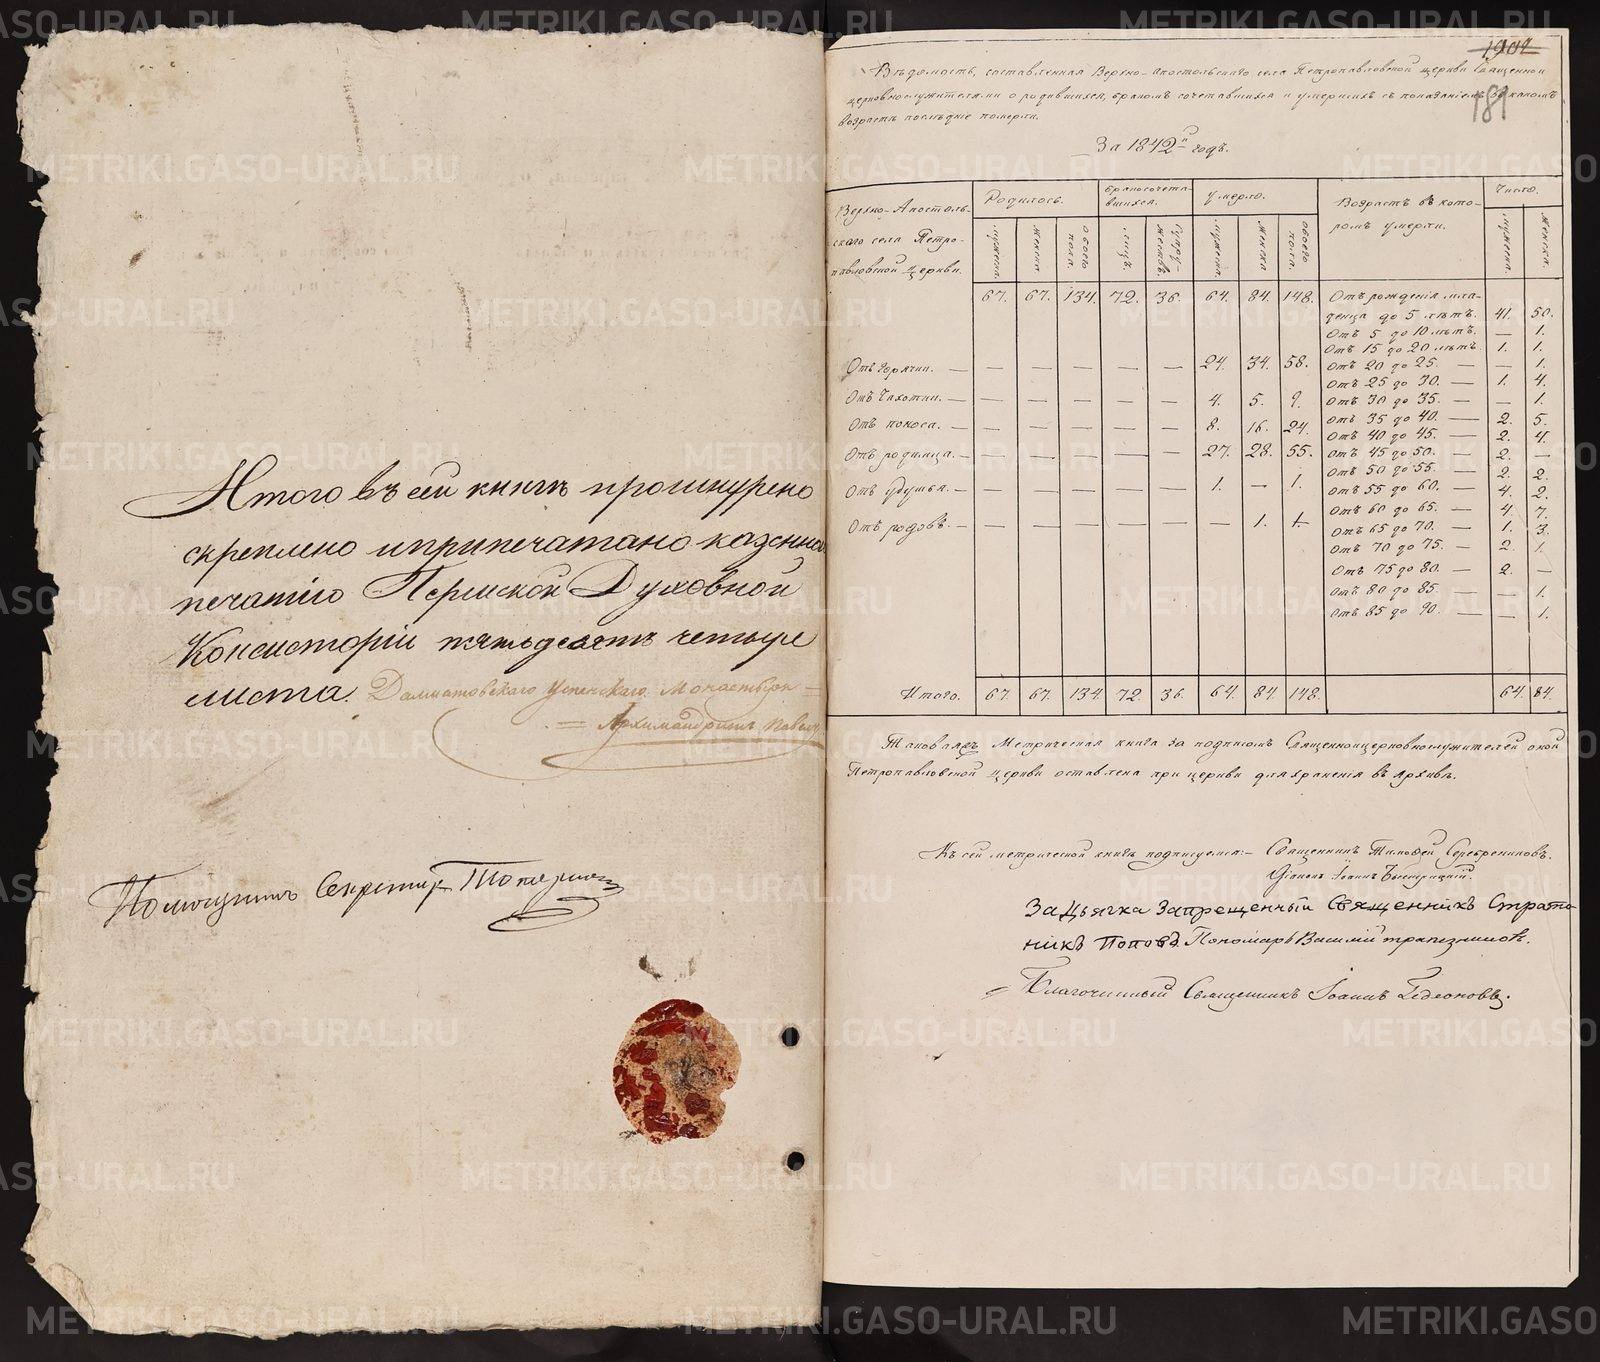 Итого въ сей книгѣ прошнурено
скреплено и припечатано казенною
печатію Пермской Духовной
Консисторіи пятьдесятъ четыре
листа. Далматовскаго Успенскаго Монастыря
Архимандритъ Павелъ
Помощникъ Секретаря
1902
181
Вѣдомость, составленная Верхно-Апостольскаго села Петропавловской церкви Священно
церковнослужителями о родившихся, бракомъ сочетавшихся и умершихъ съ показаніемъ въ какомъ
возрастѣ послѣдніе померли.
За 1842й годъ.
Верхно-Апостоль-
скаго села Петро-
павловской церкви.
Родилось. Бракосочета-
вшихся. Умерло. Возрастъ въ кото-
ромъ умерли. Число.
мужеска. женска обоего пола. лицъ. супру-
жествъ. мужеска. женска обоего пола. мужеска. женска.
67. 67. 134. 72. 36. 64. 84. 148. Отъ рожденія мла-
денца до 5 лѣтъ. 41. 50.
Отъ 5 до 10 лѣтъ. — 1.
Отъ 15 до 20 лѣтъ. 1. 1.
Отъ горячки. — — — — — — 24. 34. 58. Отъ 20 до 25. — — 1.
Отъ 25 до 30. — 1. 4.
Отъ чахотки. — — — — — — 4. 5. 9. Отъ 30 до 35. — — 1.
Отъ 35 до 40. — 2. 5.
Отъ поноса. — — — — — — 8. 16. 24. Отъ 40 до 45. — 2. 4.
Отъ родимца. — — — — — — 27. 28. 55. Отъ 45 до 50. — 2. —
Отъ 50 до 55. — 2. 2.
Отъ удушья. — — — — — — 1. — 1. Отъ 55 до 60. — 4. 2.
Отъ 60 до 65. — 4. 7.
Отъ родовъ. — — — — — — — 1. 1. Отъ 65 до 70. — 1. 3.
Отъ 70 до 75. — 2. 1.
Отъ 75 до 80. — 2. —
Отъ 80 до 85. — — 1.
Отъ 85 до 90. — — 1.
Итого. 67. 67. 134. 72. 36. 64. 84. 148. 64. 84.
Таковаяжъ Метрическая книга за подписомъ Священноицерковнослужителей оной
Петропавловской церкви оставлена при церкви для храненія въ Архивѣ.
Къ сей метрической книгѣ подписуемся:— Священникъ Тимофей Серебрениковъ.
Діаконъ Іоаннъ Быстрицкій.
За Дьячка Запрещенный Священникъ Страто-
никъ Поповъ Пономарь Василій Трапезниковъ.
Благочинный Священникъ Іоаннъ Гедеоновъ.
METRIKI.GASO-URAL.RU